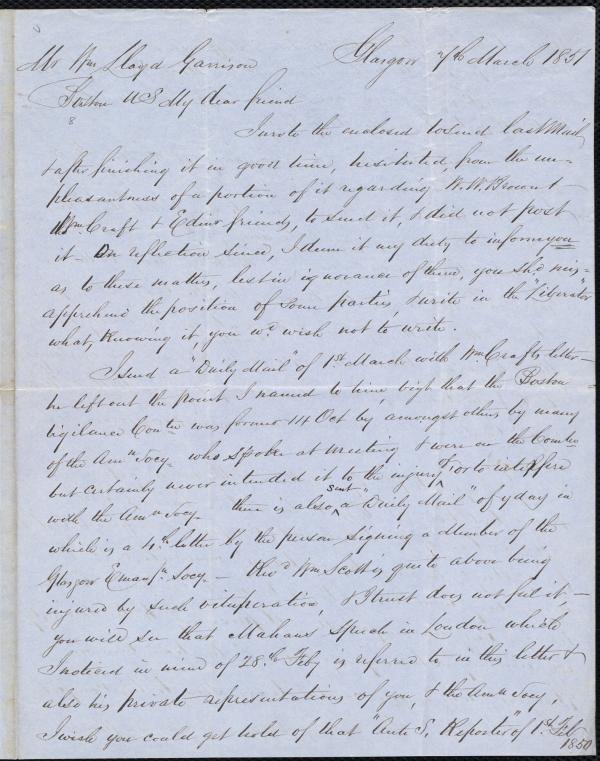 Glasgow 7th March 1851
Mr Wm Lloyd Garrison
Boston U S My dear friend
8
I wrote the enclosed to send last Mail
& after finishing it in good time, hesitated, from the un-
pleasantness of a portion of it regarding W. W. Brown &
Wm Craft & Edinr friends, to send it, & did not post
it - On reflection since, I deem it my duty to inform you
as to these matters, lest in ignorance of them, you shd mis-
apprehend the position of some parties, & write in the "Liberator"
what, knowing it, you wd wish not to write.
I send a "Daily Mail" of 1st March with Wm Crafts letter -
he left out the point I named to him, vizt that the Boston
Vigilance Comtee was formed 14 Oct by amongst others by many
of the Amn Socy. who spoke at meeting & were on the Comtee
but certainly never intended it to the injury of or to interfere
with the Amn Socy - there is also sent a "Daily Mail" of yday in
which is a 4th letter by the person signing a Member of the
Glasgow Emanpn Socy - Revd Wm Scott is quite above being
injured by such vituperation, & I trust does not feel it, -
you will see that Mahans Speech in London which
I noticed in mine of 28th Feby is referred to in this letter &
also his private representations of you, & the Amn Socy,
I wish you could get hold of that "Anti S. Reporter" of 1st Feb
1850